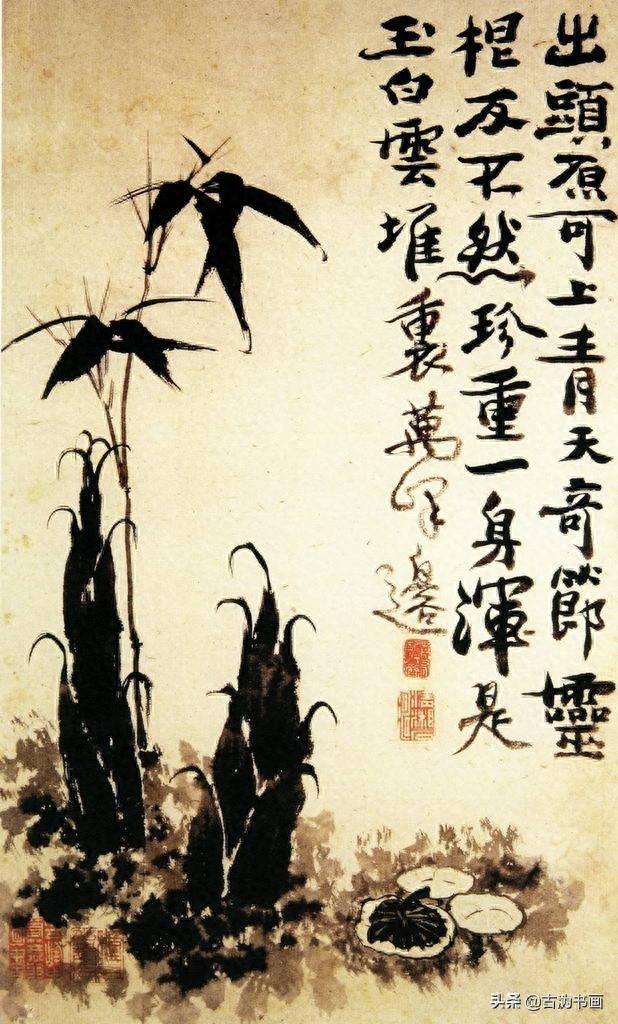 出頭原可上青天奇節靈
根反不然珍重一身渾是
玉白雲堆裏萬峰邊
头条 @古泐书画